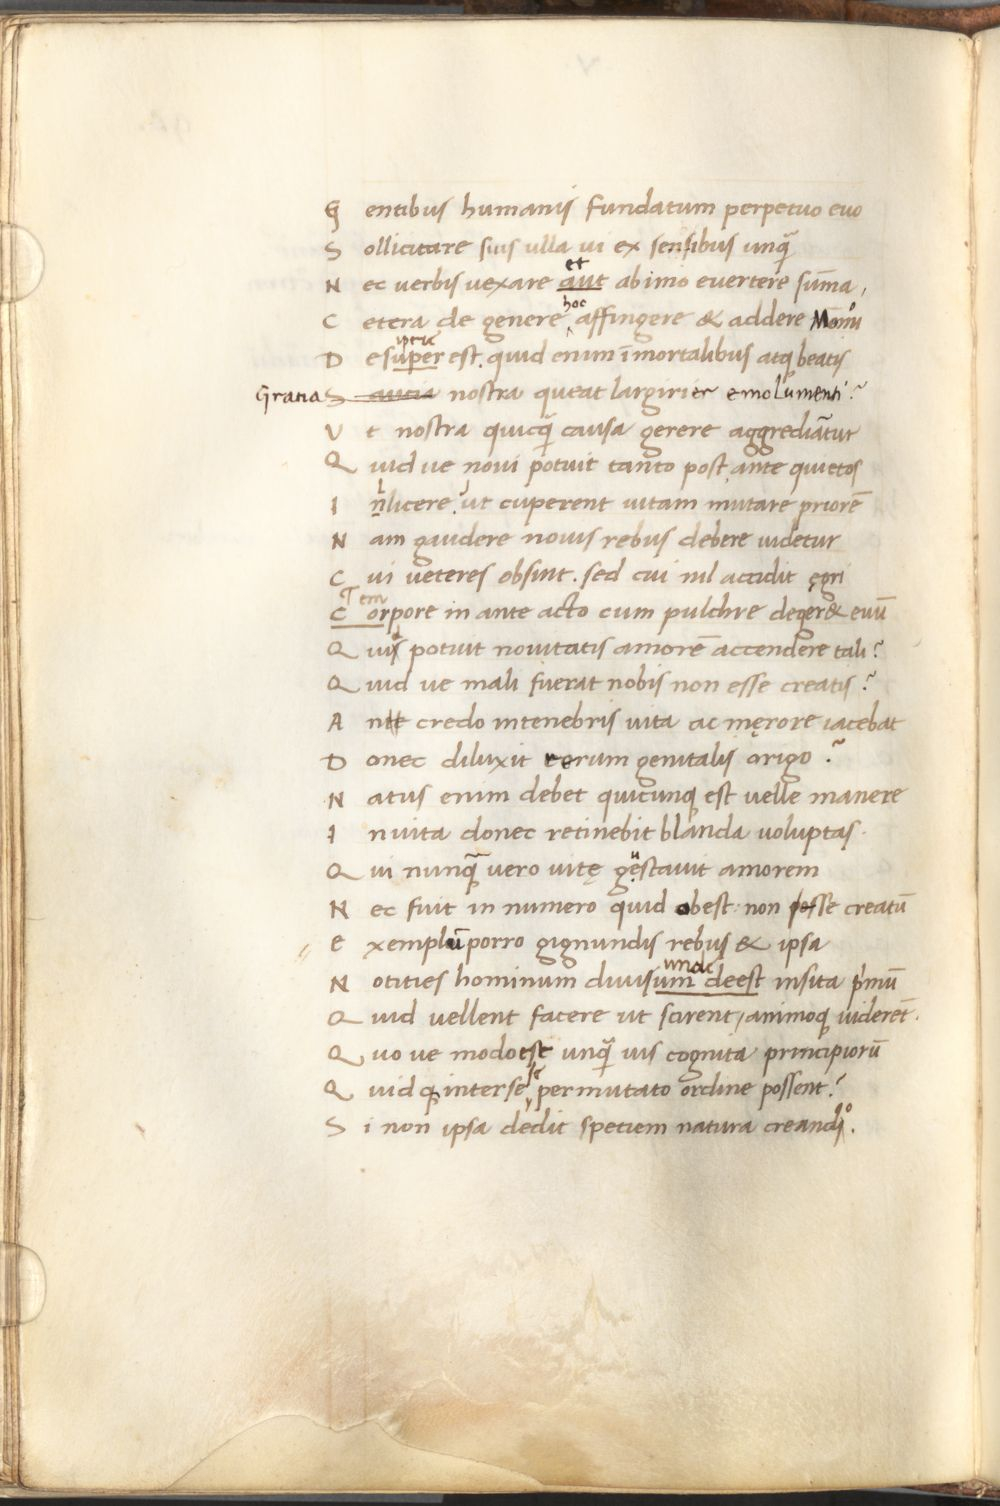 G entibus humanis fundatum perpetuo euo
S ollicitare suis ulla ui ex sensibus unq̃
et
N ec uerbis uexare aut ab imo euertere sūma,
hoc
C etera de genere affingere & addere Momi
D esuper est. quid enim īmortalibus atq beatis
Gratia S aucia nostra queat largirier emolumenti?
V t nostra quicq̃ causa gerere aggrediãtur
Q uid ue noui potuit tanto post ante quietos
I nlicere ut cuperent uitam mutare priorē
N am gaudere nouis rebus debere uidetur
C ui ueteres obsint. sed cui nil accidit ęgri
Tem
C orpore in ante acto cum pulchre deger& euū
Q uis potuit nouitatis amorē accendere tali?
Q uid ue mali fuerat nobis non esse creatis?
A n credo intenebris uita ac męrore iacebat
D onec diluxit rerum genitalis origo?
N atus enim debet quicunq est uelle manere
I nuita donec retinebit blanda uoluptas.
Q ui nunq̃ uero uitę gustauit amorem
N ec fuit in numero quid obest: non esse creatū
E xemplū porro gignundis rebus & ipsa
unde
N otities hominum diuisum deest insita pͥmū
Q uid uellent facere ut scirent, animoq uiderēt.
Q uo ue modo est unq̃ uis cognita principiorū
se
Q uid q interse permutato ordine possent?
S i non ipsa dedit speciem natura creandi.